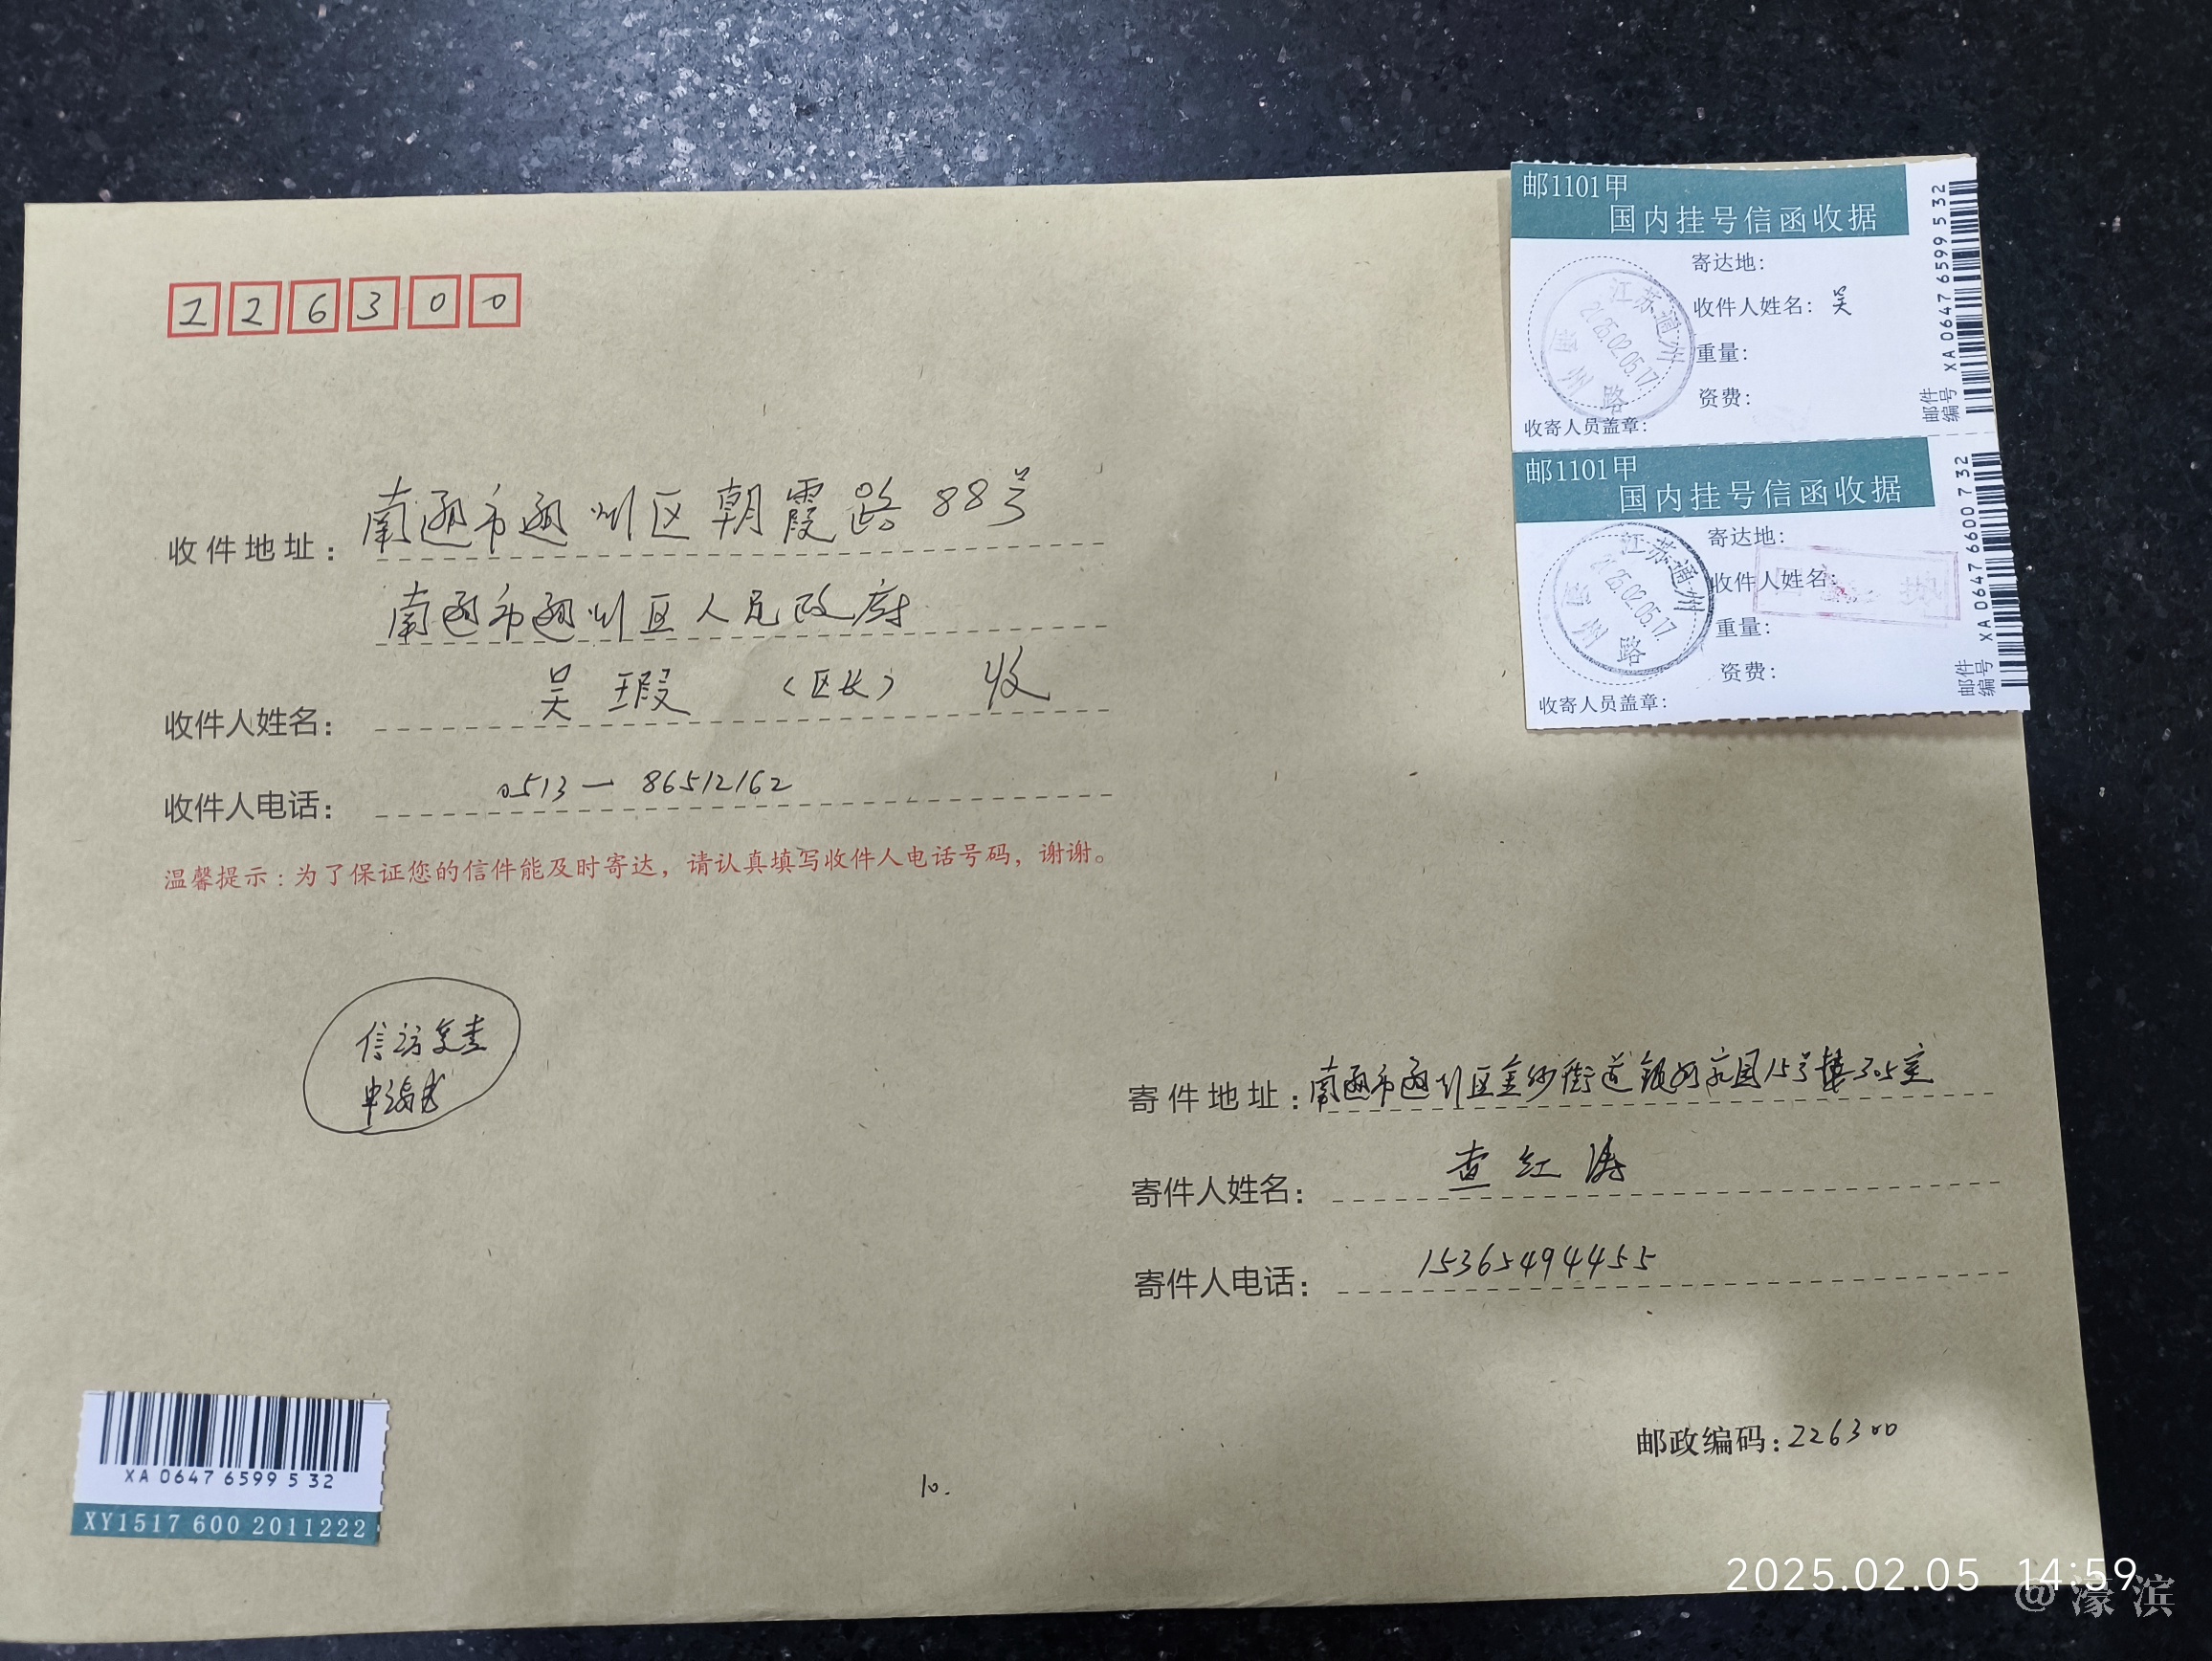 226300
收件地址：南通市通州区朝霞路88号
南通市通州区人民政府
收件人姓名：吴瑕（区长）收
收件人电话：0513—86512162
温馨提示：为了保证您的信件能及时寄达，请认真填写收件人电话号码，谢谢。
信访复查
申请书
寄件地址：南通市通州区金沙街道银河家园15号楼305室
寄件人姓名：查红涛
寄件人电话：15365494455
邮政编码：226300
10.
XA 0647 6599 5 32
XY1517 600 2011222
邮1101甲
国内挂号信函收据
寄达地：
收件人姓名：吴
重量：
资费：
收寄人员盖章：
邮件编号 XA 0647 6599 5 32
江苏通州
25.02.05.17
路
邮1101甲
国内挂号信函收据
寄达地：
收件人姓名：
重量：
资费：
收寄人员盖章：
邮件编号 XA 0647 6600 7 32
江苏通州
25.02.05.17
路
2025.02.05 14:59
@濠滨